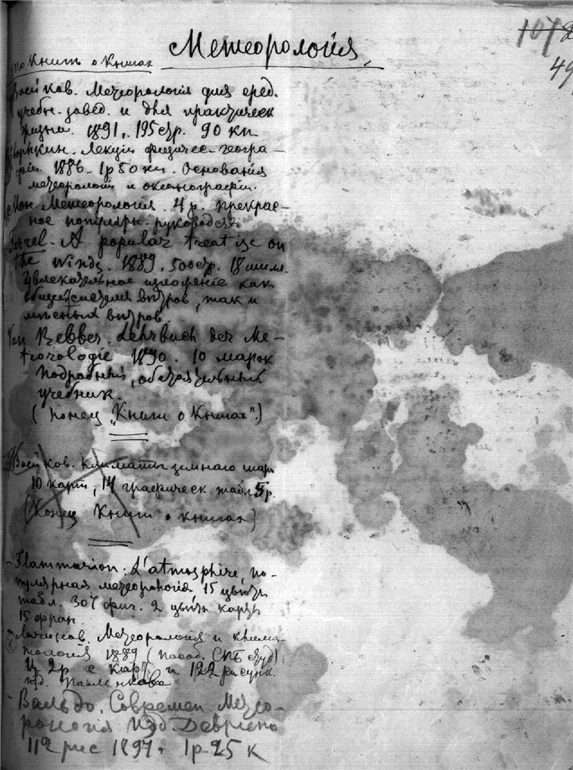 107
49
Метеорологія.
по Книгѣ о Книгах
Воейков. Метеорология для сред.
учебн. завед. и для практическ
жизни. 1891. 195 стр. 90 коп
Лекции физичес. геогра-
фии 1886 1р 50 коп. Основания
метеорологии и океанографии.
Мон. Метеорология. 4 р. прекрас-
ное популярн. руководств.
A popular treatise on
the winds. 1889. 500 стр. 18 шилл
увлекательное изложение как
общей системы вѣтров, так и
мѣстных вѣтров.
Van Bebber. Lehrbuch der Me-
teorologie 1890. 10 марок
подробный, обстоятельный
учебник.
(Конец "Книги о Книгах".)
Воейков. Климаты земнаго шара
10 карт, 14 графическ. табл. 5 р.
(Конец Книги о книгах)
- Flammarion. L'atmosphère, по-
пулярная метеорология 15 цвѣтн
табл. 307 фиг. 2 цвѣтн карты
15 фран.
Метеорология и клима-
тология 1889 (пособ. СПБ студ)
Ц 2р с карт. и 122 рисунк.
изд. Павленкова
- Вальдо. Современ Метео-
рология Изд. Девриена
112 рис 1897 г. 1р-25 к